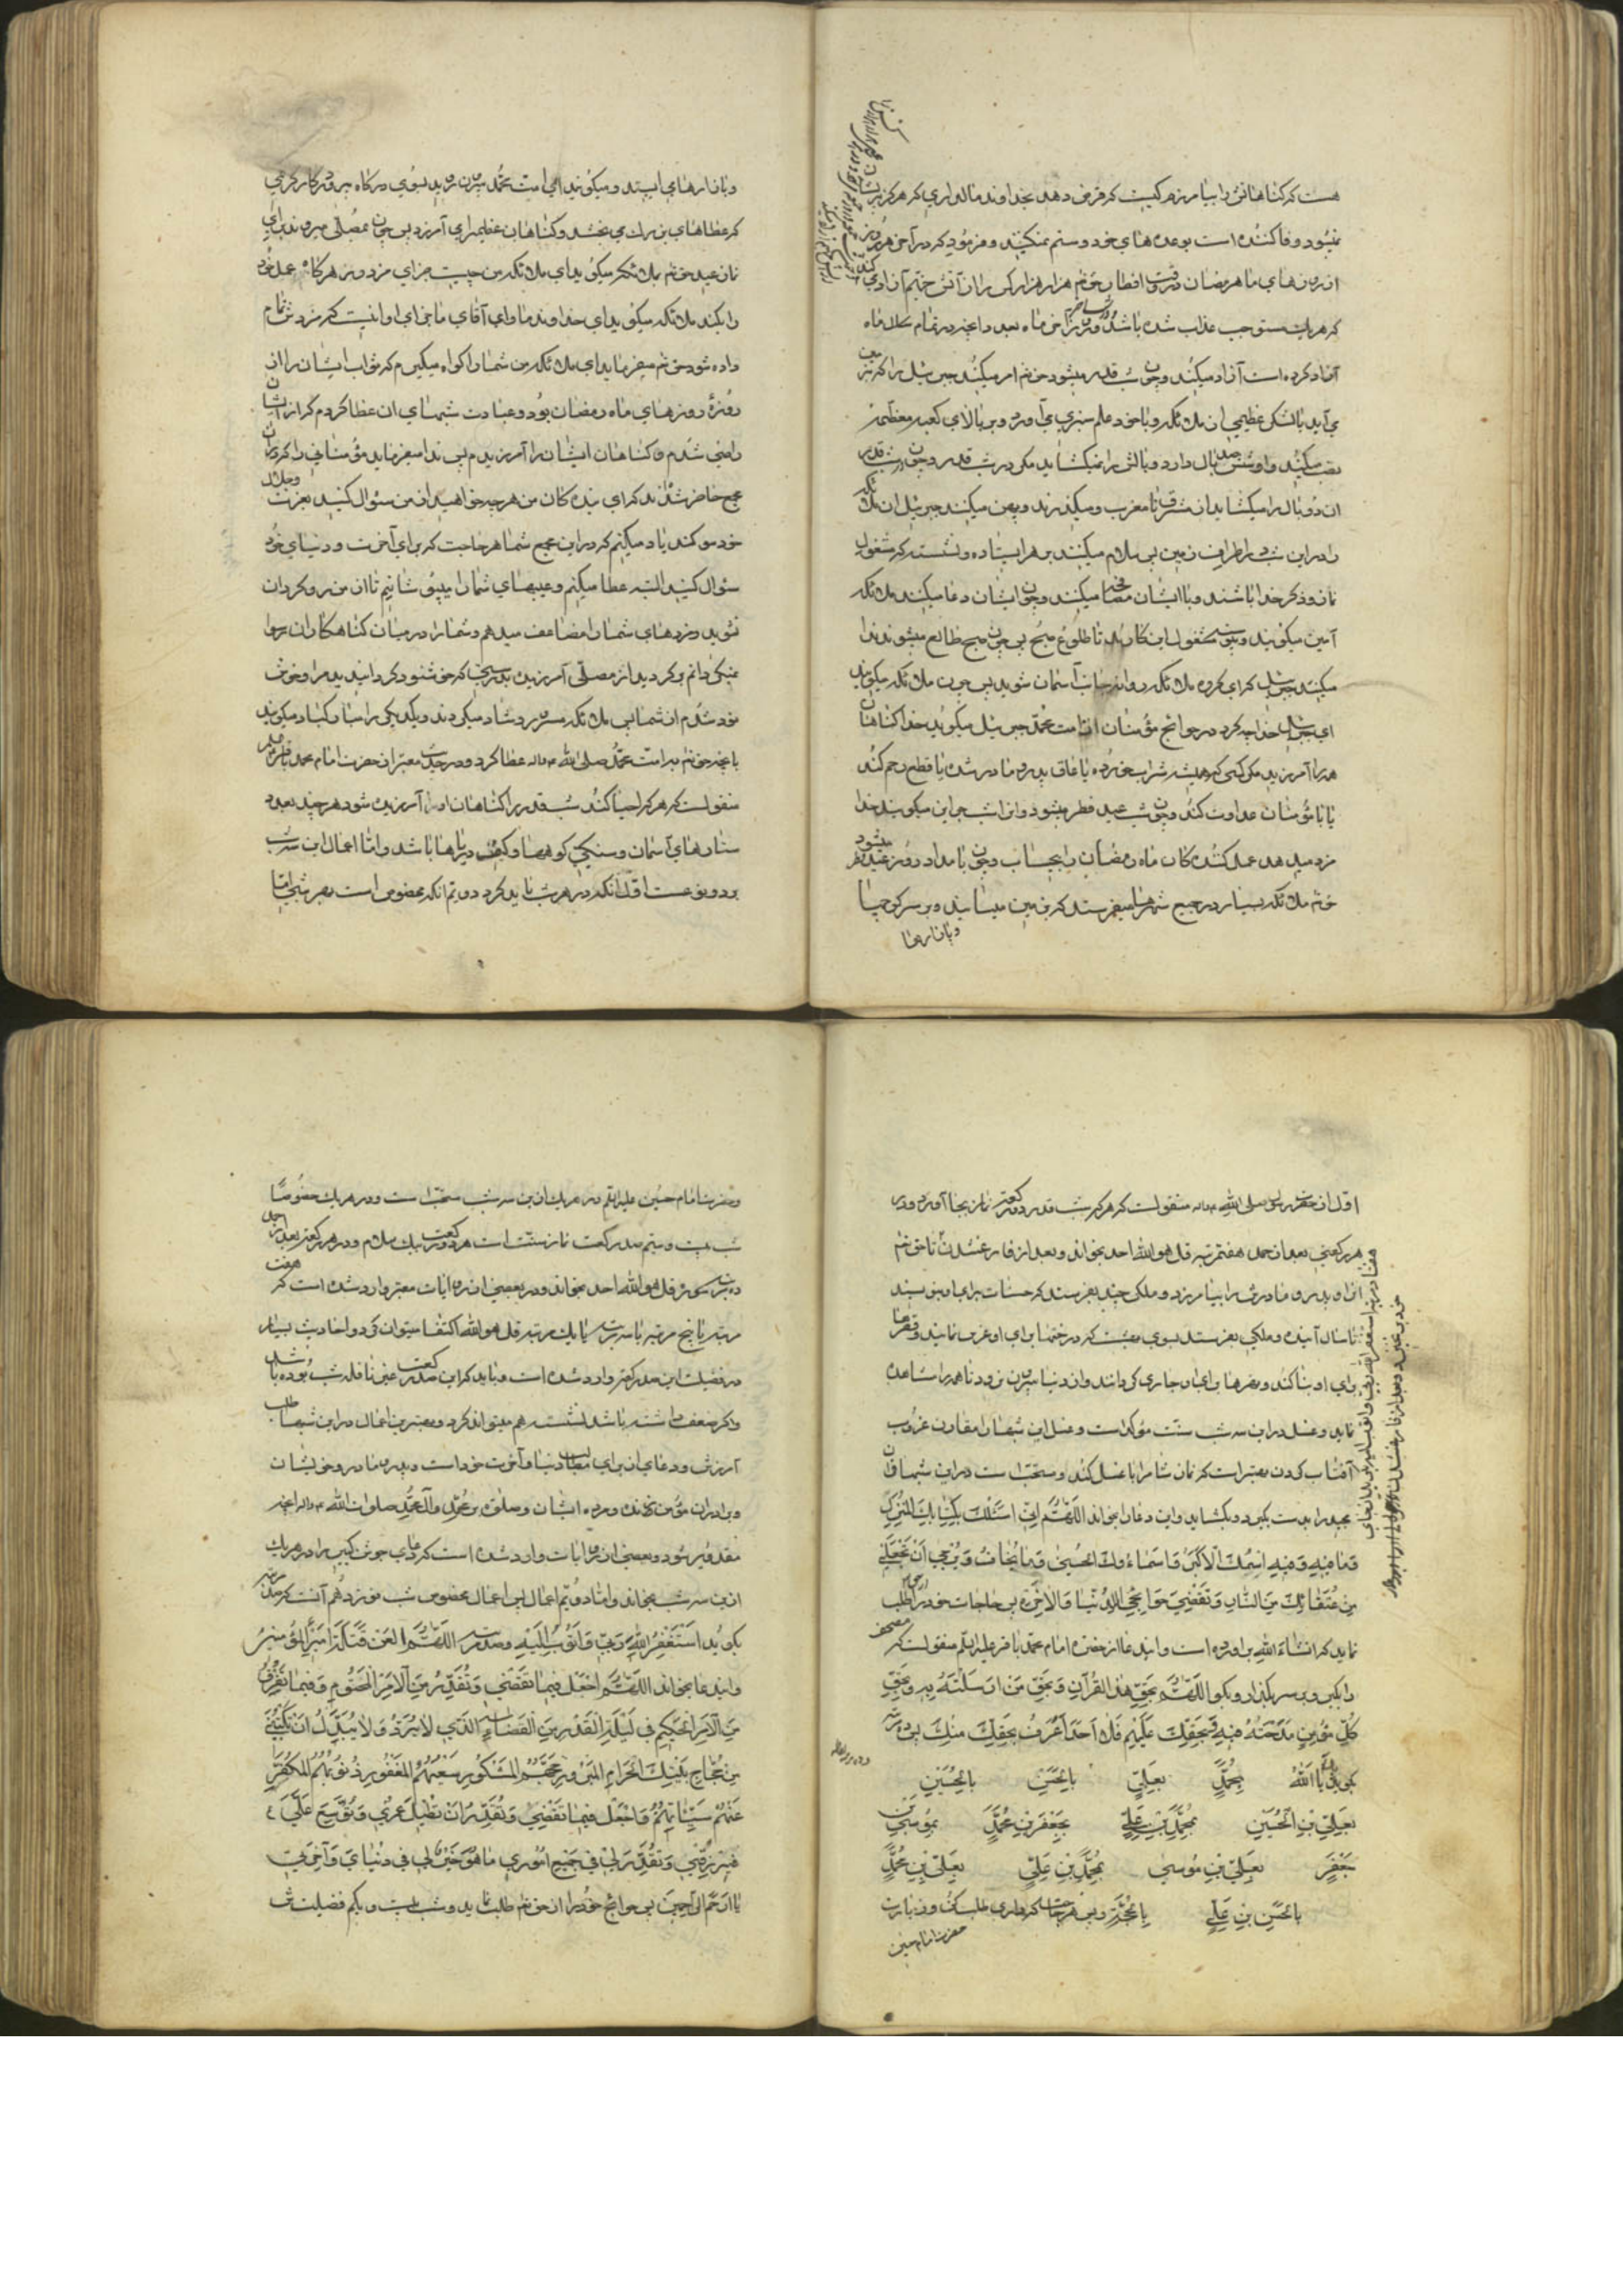 هست که کناهانش را بیامرزم کیست که قرض دهد بخداوند مالداری که هرکز پریشان
نمیشود و وفا کننده است بوعده های خود و ستم نمیکند و فرمود که در آخر هر روز
از روزهای ماه رمضان در وقت افطار حقتع هزار هزار کس را از آتش جهنم آزاد میکند
که هر یک مستوجب عذاب شده باشند و در روز آخر ماه بعدد آنچه در تمام ماه
آزاد کرده است آزاد میکند و چون شب قدر میشود حقتع امر میکند جبرئیل را که بزمین
می آید با لشکر عظیمی از ملائکه و با خود علم سبزی می آورد و بر بالای کعبه معظمه
نصب میکند و او ششصد بال دارد و دو بالش را نمیکشاید مکر در شب قدر و چون شب قدر
آن دو بال را میکشاید از مشرق تا مغرب میکذرند و پهن میکند جبرئیل آن ملائکه
را در این شب در اطراف زمین پس سلام میکنند بر هر ایستاده و نشسته که مشغول
نماز و ذکر خدا باشند و با ایشان مصافحه میکنند و چون ایشان دعا میکنند ملائکه
آمین میکویند و پیوسته مشغول این کارند تا طلوع صبح پس چون صبح طالع میشود ندا
میکند جبرئیل که ای کروه ملائکه روانه جانب آسمان شوید پس چون ملائکه میکویند
ای جبرئیل خدا چه کرد در حوائج مؤمنان از امت محمد جبرئیل میکوید خدا کناهان
همه را آمرزید مکر کسی که همیشه شراب خورده یا عاق پدر و مادر شده یا قطع رحم کند
یا با مؤمنان عداوت کند و چون شب عید فطر میشود و آن شب جوایز میکویند خدا
مزد میدهد عمل کنندکان ماه رمضان را بیحساب و چون بامداد روز عید فطر میشود
حقتع ملائکه بسیار در جمیع شهرها میفرستد که بزمین میایند و بر سر کوچها
و بازارها
و بازارها می ایستند و میکویند ای امت محمد بیرون روید بسوی درکاه پروردکار کریمی
که عطاهای بزرک می بخشد و کناهان عظیم را می آمرزد پس چون بمصلی میروند برای
نماز عید حقتع بملائکه میکوید ای ملائکه من چیست جزای مزدور هرکاه عمل خود
را بکند ملائکه میکویند ای خداوند ما و ای آقای ما جزای او اینست که مزدش تمام
داده شود حقتع میفرماید ای ملائکه من شما را کواه میکیرم که ثواب ایشان را از
روزهٔ روزهای ماه رمضان بود و عبادت شبهای آن عطا کردم که از ایشان
راضی شدم و کناهان ایشان را آمرزیدم پس ندا میفرماید مؤمنانی را که در آن
مجمع حاضر شده اند که ای بنده کان من هر چه خواهید از من سؤال کنید بعزت و جلال
خود سوکند یاد میکنم که در این مجمع شما هر حاجت که برای آخرت و دنیای خود
سؤال کنید البته عطا میکنم و عیبهای شما را میپوشانم تا از من رو کردان
نشوید و مزدهای شما را مضاعف میدهم و شما را در میان کناهکاران رسوا
نمیکردانم بر کردید از مصلی آمرزیده بدرستی که خوشنود کردانیدید مرا و خوش
نود شدم از شما پس ملائکه مسرور و شاد میکردند و یکدیکر را مبارکباد میکویند
بآنچه حقتع بر امت محمد صلی الله علیه و اله عطا کرد و در حدیث معتبر از حضرت امام محمد باقر
منقولست که هر که احیا کند شب قدر را کناهان او را آمرزیده شود هر چند بعدد
ستارهای آسمان و سنکینی کوهها و کیل دریاها باشد و اما اعمال این سه شب
بر دو نوعست اول آنکه در هر شب باید کرد دوم آنکه مخصوص است بهر شبی اما
اول از حضرت رسول صلی الله علیه و اله منقولست که هر که شب قدر دو رکعت نماز بجا آورد و در
هر رکعتی بعد از حمد هفت مرتبه قل هو الله احد بخواند و بعد از فارغ شدن تا حقتع
او را و پدر و مادرش را بیامرزد و ملکی چند بفرستد که حسنات برای او بنویسند
تا سال آینده و ملکی بفرستد بسوی بهشت که درختها برای او غرس نمایند و قصرها
برای او بنا کند و نهرها برای او جاری کردانند و از دنیا بیرون نرود تا همه را مشاهده
نماید و غسل در این سه شب سنت مؤکد است و غسل این شبها را مقارن غروب
آفتاب کردن بهتر است که نماز شام را با غسل کند و سنت است در این شبها قرآن
مجید را بدست بکیرد و بکشاید و این دعا را بخواند اللهم انی اسئلک بکتابک المنزل
و ما فیه و فیه اسمک الاکبر و اسماءک الحسنی و ما یخاف و یرجی ان تجعلنی
من عتقائک من النار و تقضی حوایجی للدنیا و الاخرة پس حاجات خود را طلب
نماید که انشاء الله بر آورده است و ایضا از حضرت امام محمد باقر علیه السلم منقولست که مصحف
را بکیر و بر سر بکذار و بکو اللهم بحق هذا القرآن و بحق من ارسلته به و بحق
کل مؤمن مدحته فیه و بحقک علیهم فلا احد اعرف بحقک منک پس ده مرتبه
بکوید بک یا الله بمحمد بعلی بالحسن بالحسین
بعلی بن الحسین بمحمد بن علی بجعفر بن محمد بموسی بن
جعفر بعلی بن موسی بمحمد بن علی بعلی بن محمد
بالحسن بن علی بالحجة و پس هر حاجت که داری طلب کن و زیارت
حضرت امام حسین
حضرت امام حسین علیه السلم در هر یک از این سه شب سنت است و در هر یک خصوصا
شب بیست و سیم صد رکعت نماز سنت است هر دو رکعت بیک سلام و در هر رکعت بعد از حمد
ده مرتبه قل هو الله احد بخواند و در بعضی از روایات معتبر وارد شده است که هفت
مرتبه یا پنج مرتبه یا سه مرتبه یا یک مرتبه قل هو الله اکتفا میتوان کرد و احادیث بسیار
در فضیلت این صد رکعت وارد شده است و باید که این صد رکعت غیر نافله شب بوده باشد
و اکر ضعف داشته باشد نشسته هم میتواند کرد و بهترین اعمال در این شبها طلب
آمرزش و دعا از برای مطالب دنیا و آخرت خود است و پدر و مادر و خویشان
و برادران مؤمن زنده و مرده ایشان و صلوات بر محمد و آل محمد صلوات الله علیه و اله آنچه
مقدور شود و بعضی از روایات وارد شده است که دعای جوشن کبیر را در هر یک
از این سه شب بخواند و اما دویم اعمال پس اعمال مخصوص شب نوزدهم آنست که صد مرتبه
بکوید استغفر الله ربی و اتوب الیه و صد مرتبه اللهم العن قتلة امیر المؤمنین
و ایندعا بخواند اللهم اجعل فیما تقضی و تقدر من الامر المحتوم و فیما تفرق
من الامر الحکیم فی لیلة القدر من القضاء الذی لا یرد و لا یبدل ان تکتبنی
من حجاج بیتک الحرام المبرور حجهم المشکور سعیهم المغفور ذنوبهم المکفر
عنهم سیئاتهم و اجعل فیما تقضی و تقدر ان تطیل عمری و توسع علی
فی رزقی و تقدر لی فی جمیع اموری ما هو خیر لی فی دنیای و آخرتی
یا ارحم الراحمین پس حوائج خود را از حقتع طلب نماید و شب بیست و یکم فضیلتش